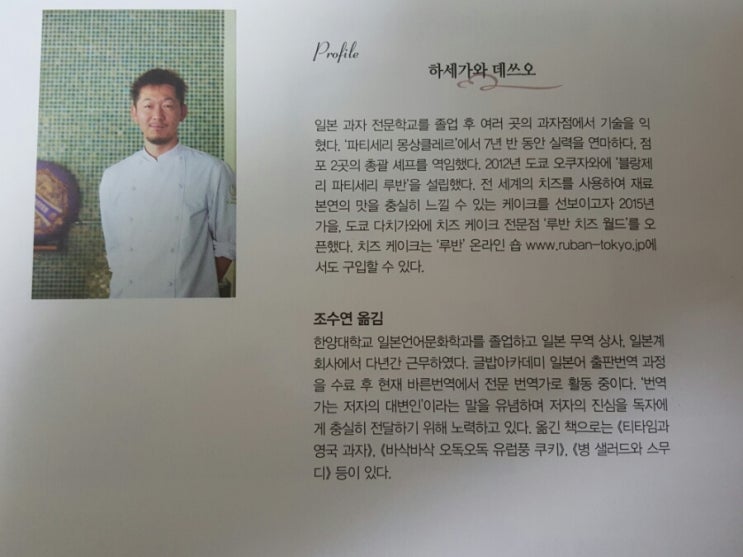 Profile
하세가와 데쓰오
일본 과자 전문학교를 졸업 후 여러 곳의 과자점에서 기술을 익
혔다. '파티세리 몽상클레르'에서 7년 반 동안 실력을 연마하다, 점
포 2곳의 총괄 셰프를 역임했다. 2012년 도쿄 오쿠자와에 '블랑제
리 파티세리 루반'을 설립했다. 전 세계의 치즈를 사용하여 재료
본연의 맛을 충실히 느낄 수 있는 케이크를 선보이고자 2015년
가을, 도쿄 다치가와에 치즈 케이크 전문점 '루반 치즈 월드'를 오
픈했다. 치즈 케이크는 '루반' 온라인 숍 www.ruban-tokyo.jp에
서도 구입할 수 있다.
조수연 옮김
한양대학교 일본언어문화학과를 졸업하고 일본 무역 상사, 일본계
회사에서 다년간 근무하였다. 글밥아카데미 일본어 출판번역 과정
을 수료 후 현재 바른번역에서 전문 번역가로 활동 중이다. '번역
가는 저자의 대변인'이라는 말을 유념하며 저자의 진심을 독자에
게 충실히 전달하기 위해 노력하고 있다. 옮긴 책으로는 《티타임과
영국 과자》, 《바삭바삭 오독오독 유럽풍 쿠키》, 《병 샐러드와 스무
디》 등이 있다.